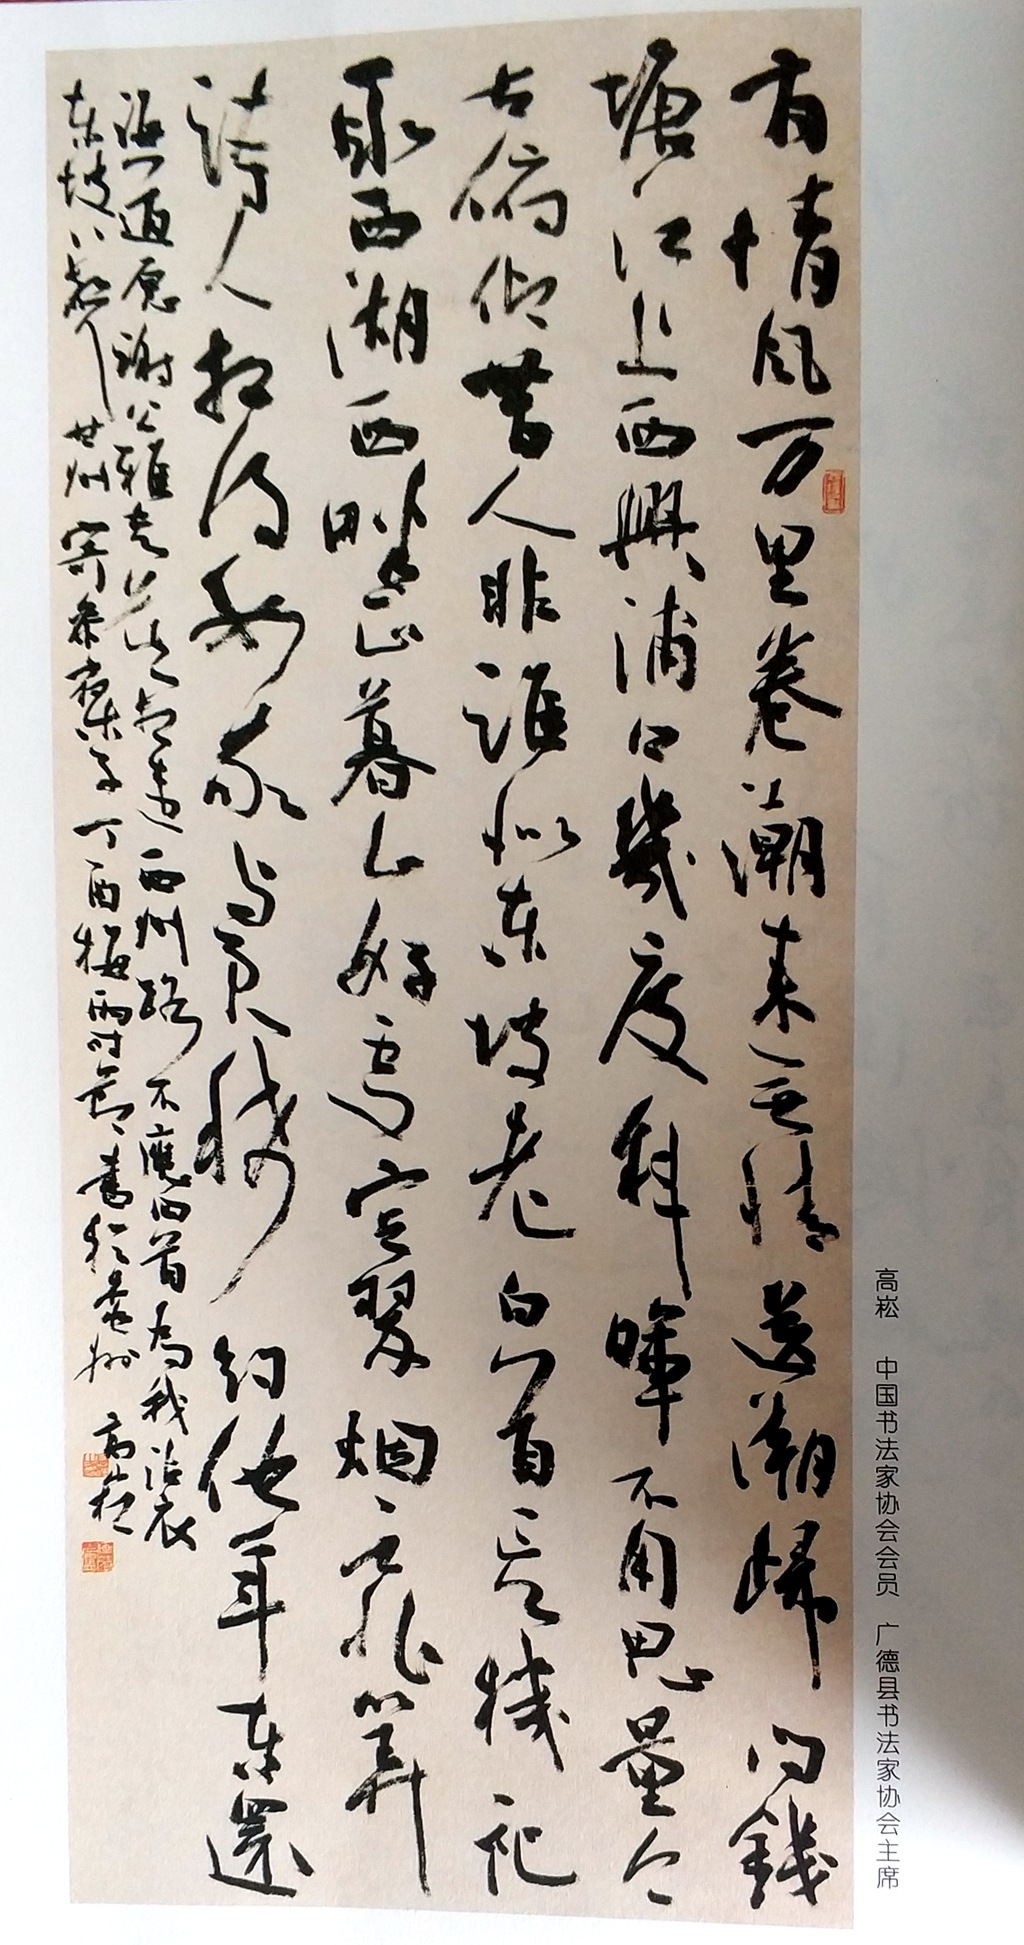 有情風万里卷潮来无情送潮歸问錢
塘江上西興浦口幾度斜暉不用思量今
古俯仰昔人非誰似东坡老白首忘機記
取西湖西畔正暮山好處空翠烟霏算
詩人相得如我与君稀約他年东還
海道愿謝公雅志莫相违西州路不應回首為我沾衣
东坡八声甘州寄参寥子丁酉梅雨时节書於州高崧
高崧 中国书法家协会会员 广德县书法家协会主席